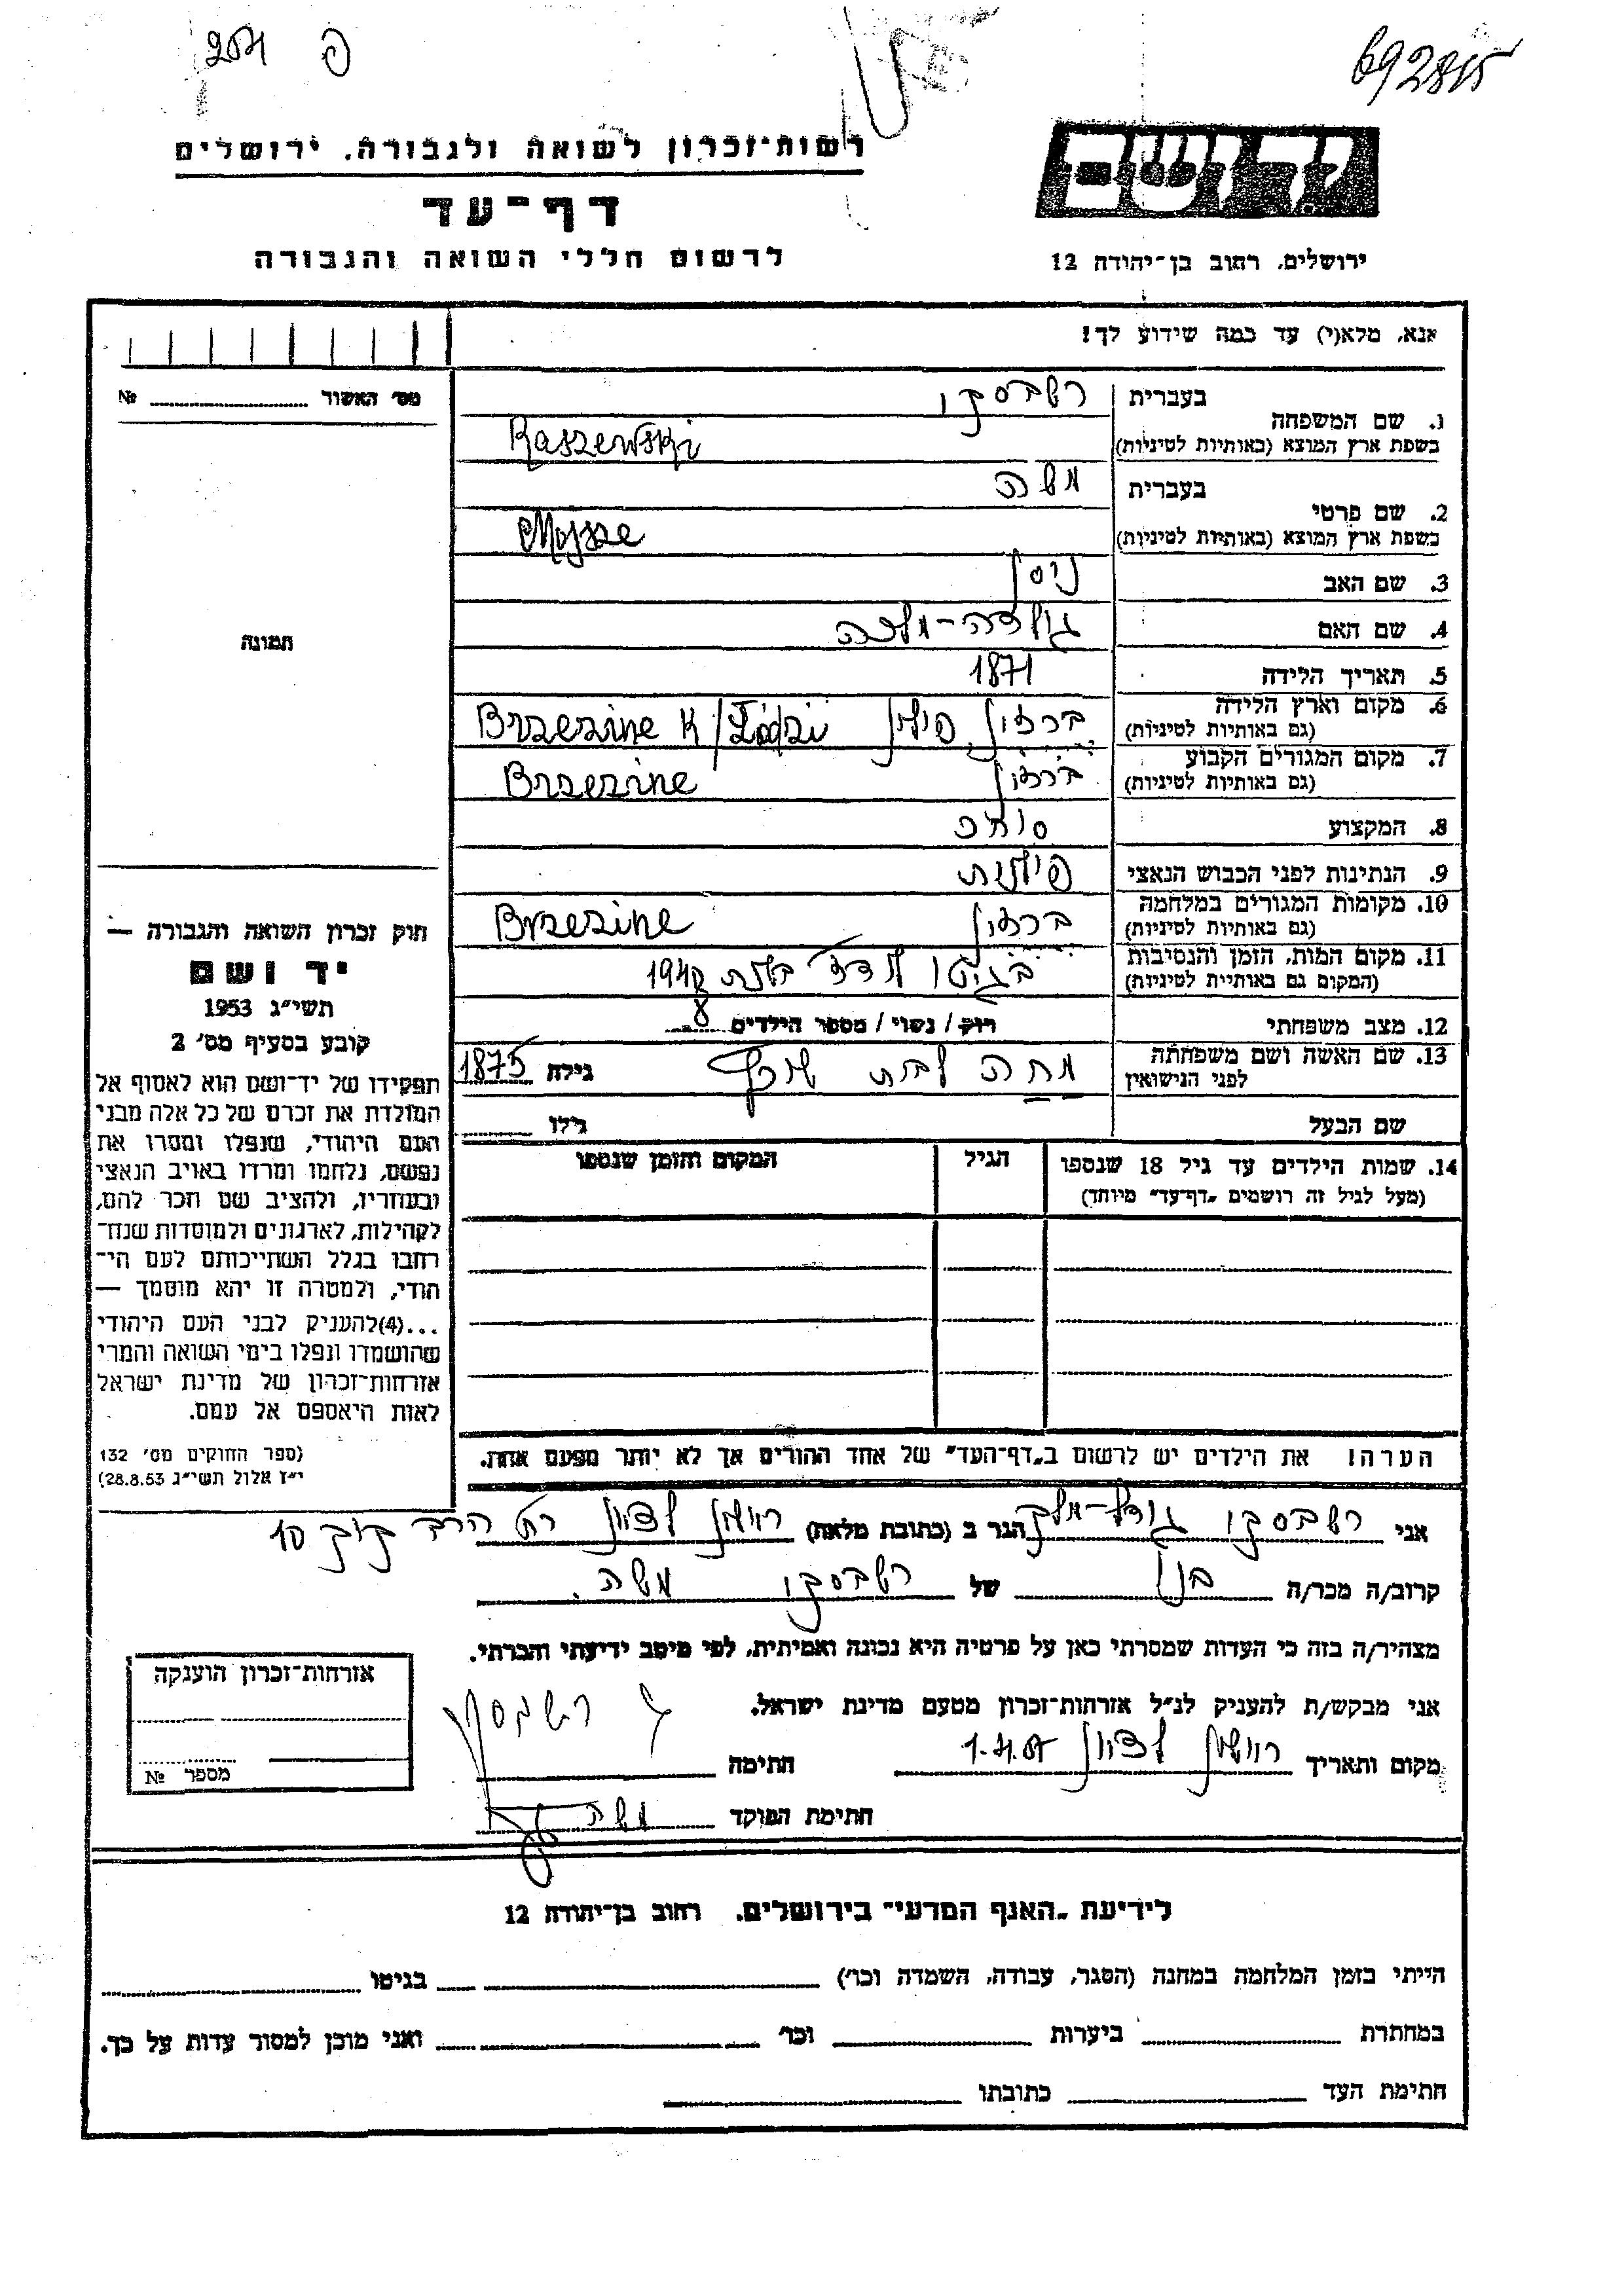 204 פ
692815
רשות־זכרון לשואה ולגבורה, ירושלים
דף־עד
לרשום חללי השואה והגבורה
יד ושם
ירושלים, רחוב בן־יהודה 12
אנא, מלא(י) עד כמה שידוע לך!
מס' האשור № 
תמונה
בעברית רשבסקי
1. שם המשפחה
בשפת ארץ המוצא (באותיות לטיניות) Raszewski
בעברית משה
2. שם פרטי
בשפת ארץ המוצא (באותיות לטיניות) Mojsze
3. שם האב ניסן
4. שם האם גולדה-מלכה
5. תאריך הלידה 1871
6. מקום וארץ הלידה
(גם באותיות לטיניות) ברזין פולין Brzezine K/Łódzi
7. מקום המגורים הקבוע
(גם באותיות לטיניות) ברזין Brzezine
8. המקצוע סוחר
9. הנתינות לפני הכבוש הנאצי פולנית
10. מקומות המגורים במלחמה
(גם באותיות לטיניות) ברזין Brzezine
11. מקום המות, הזמן והנסיבות
(המקום גם באותיית לטיניות) בגיטו לודז' בשנת
12. מצב משפחתי רוק / נשוי / מספר הילדים 8
13. שם האשה ושם משפחתה
לפני הנישואין לבית גילה 1875
שם הבעל גילו
14. שמות הילדים עד גיל 18 שנספו
(מעל לגיל זה רושמים „דף־עד" מיוחד)
הגיל
המקום והזמן שנספו
הערה! את הילדים יש לרשום ב„דף־העד" של אחד ההורים אך לא יותר מפעם אחת.
חוק זכרון השואה והגבורה —
יד ושם
תשי"ג 1953
קובע בסעיף מס' 2
תפקידו של יד־ושם הוא לאסוף אל
המולדת את זכרם של כל אלה מבני
העם היהודי, שנפלו ומסרו את
נפשם, נלחמו ומרדו באויב הנאצי
ובעוזריו, ולהציב שם וזכר להם,
לקהילות, לארגונים ולמוסדות שנח־
רבו בגלל השתייכותם לעם הי־
הודי, ולמטרה זו יהא מוסמך —
...(4)להעניק לבני העם היהודי
שהושמדו ונפלו בימי השואה והמרי
אזרחות־זכרון של מדינת ישראל
לאות היאספם אל עמם.
(ספר החוקים מס' 132
י"ז אלול תשי"ג 28.8.53)
אני רשבסקי הגר ב (כתובת מלאה) ראשון לציון רח' הרב קוק 10
קרוב/ה מכר/ה בנו של רשבסקי משה.
מצהיר/ה בזה כי העדות שמסרתי כאן על פרטיה היא נכונה ואמיתית, לפי מיטב ידיעתי והכרתי.
אני מבקש/ת להעניק לנ"ל אזרחות־זכרון מטעם מדינת ישראל.
מקום ותאריך ראשון לציון חתימה
חתימת הפוקד משה
אזרחות־זכרון הוענקה
מספר №
לידיעת „האגף המדעי" בירושלים, רחוב בן־יהודה 12
הייתי בזמן המלחמה במחנה (הסגר, עבודה, השמדה וכו') בגיטו
במחתרת ביערות וכו' ואני מוכן למסור עדות על כך.
חתימת העד כתובתו